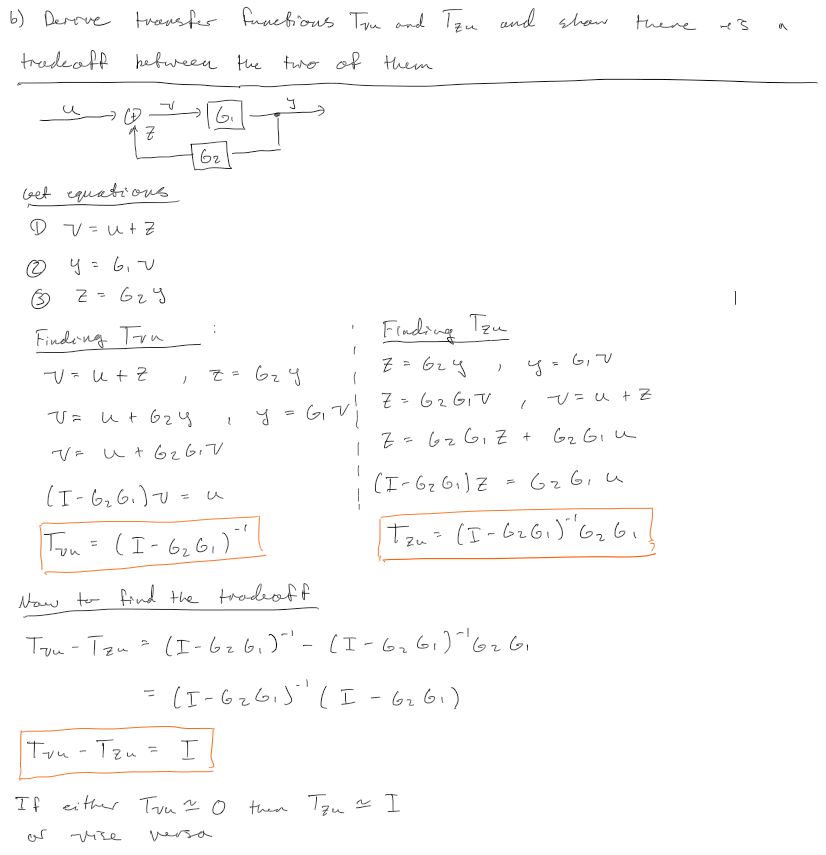 b) Derive transfer functions Tvu and Tzu and show there is a
tradeoff between the two of them
u + v G1 y
z
G2
Get equations
① v = u + z
② y = G1 v
③ z = G2 y
Finding Tvu :
v = u + z , z = G2 y
v = u + G2 y , y = G1 v
v = u + G2 G1 v
(I - G2 G1) v = u
Tvu = (I - G2 G1)⁻¹
Finding Tzu
z = G2 y , y = G1 v
z = G2 G1 v , v = u + z
z = G2 G1 z + G2 G1 u
(I - G2 G1) z = G2 G1 u
Tzu = (I - G2 G1)⁻¹ G2 G1
Now to find the tradeoff
Tvu - Tzu = (I - G2 G1)⁻¹ - (I - G2 G1)⁻¹ G2 G1
= (I - G2 G1)⁻¹ (I - G2 G1)
Tvu - Tzu = I
If either Tvu ≃ 0 then Tzu ≃ I
or vise versa